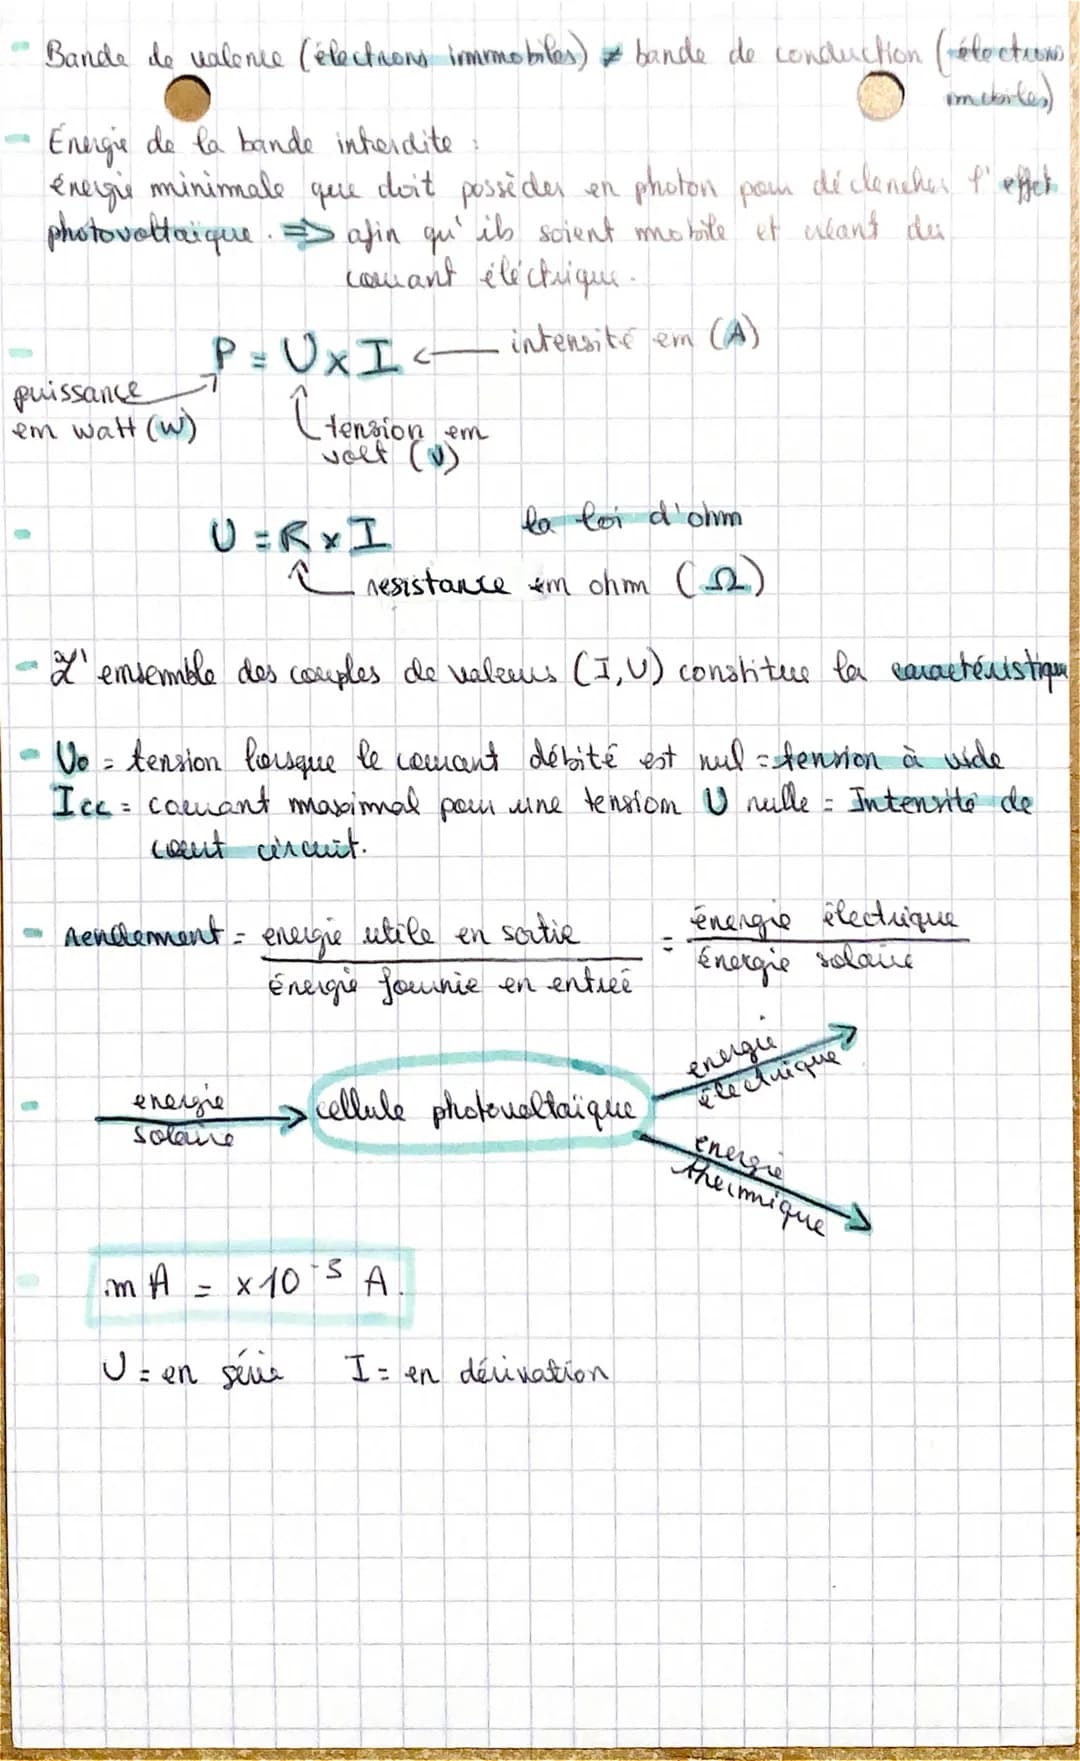 - Bande de valence (électrons immobiles) ≠ bande de conduction (électrons
mobiles)
- Énergie de la bande interdite :
énergie minimale que doit possèder en photon pour déclencher l'effet
photovoltaïque. => afin qu'ils soient mobile et créant du
courant éléctrique.
- P = U x I ← intensité en (A)
puissance
en watt (W)
tension en
volt (V)
- U = R x I la loi d'ohm
resistance en ohm (Ω)
- L'ensemble des couples de valeurs (I,U) constitue la caractéristique
- U0 = tension lorsque le courant débité est nul = tension à vide
Icc = courant maximal pour une tension U nulle = Intensité de
court circuit.
- rendement = energie utile en sortie = énergie électrique
énergie fournie en entrée énergie solaire
- energie solaire → cellule photovoltaïque
energie électrique
energie thermique
- mA = x10^-3 A.
U = en série I = en dérivation